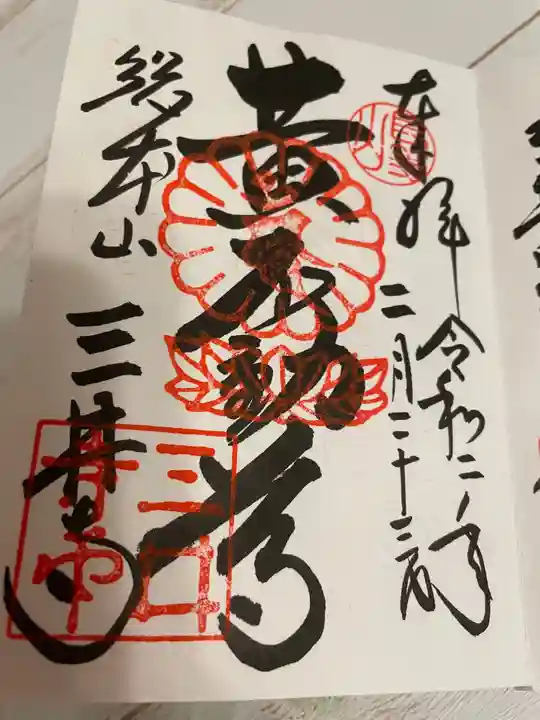 奉拝
令和二年
二月二十三日
黄不動尊
総本山
三井寺